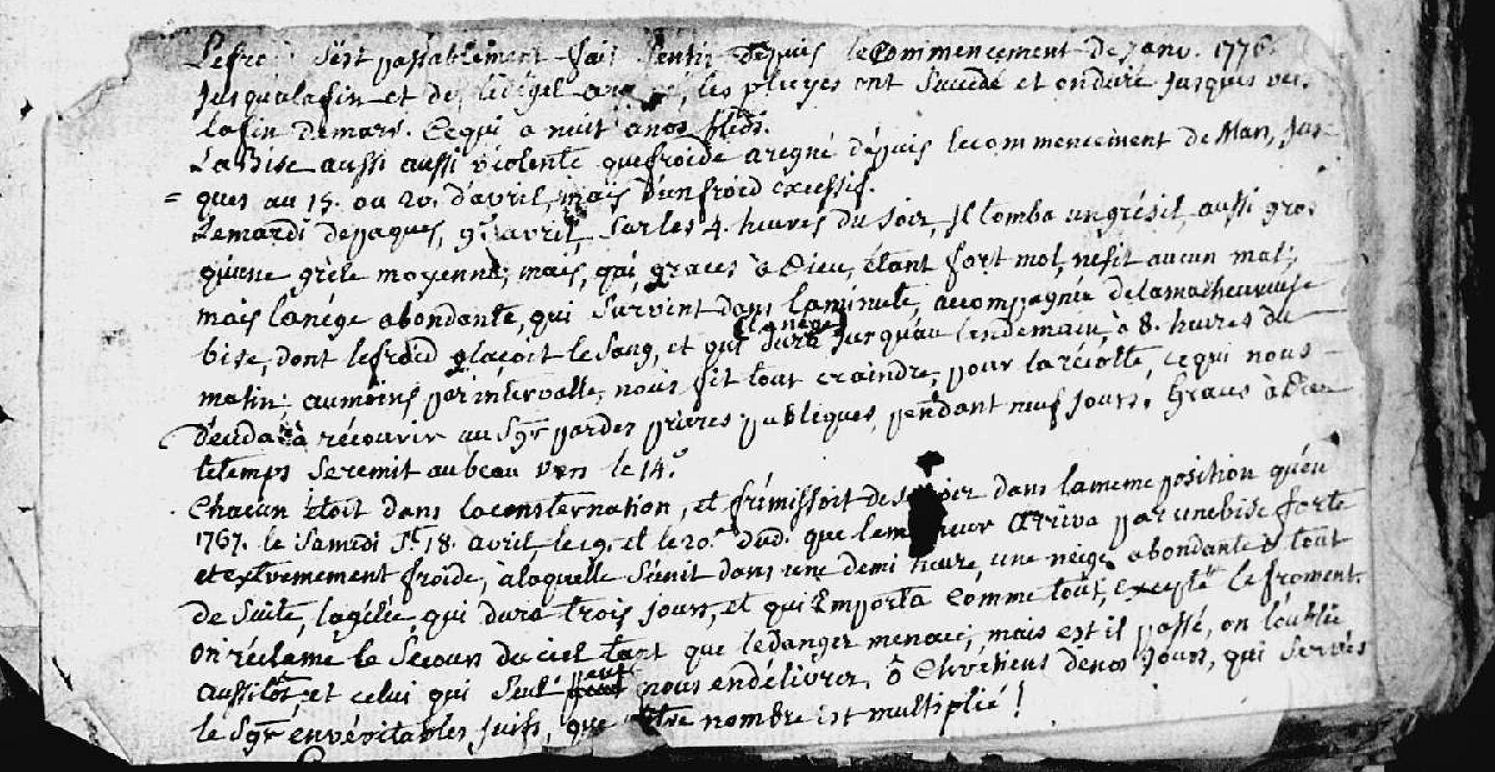 Le froid s'ést passablement fait sentir depuis le Commencement de Janv. 1776.
jusqu'à la fin et dès le dégel arrivé, les pluyes ont succédé et ont duré jusques vers
la fin de mars. Ce qui a nuit à nos bleds.
La Bise aussi aussi violente que froide a regné dépuis le commencement de Mars, jus=
=ques au 15. ou 20. d'avril, mais d'un froid excessif.
Le mardi de paques, 9.e avril, sur les 4. heures du soir, Il tomba un grésil aussi gros
qu'une grèle moyenne; mais, qui, graces à Dieu, étant fort mol, ne fit aucun mal;
mais la nége abondante, qui survint dans la minute, accompagnée de la malheureuse
bise, dont le froid glaçoit le sang, et qui (la nége) dura jusqu'au lendemain, à 8. heures du
matin; au moins par intervalle, nous fit tout craindre, pour la récolte, ce qui nous
à récourir au Sgr par des prieres publiques, pendant neuf jours. Graces à Dieu
le temps se remit au beau vers le 14.e
Chacun étoit dans la consternation, et frémissoit de se voir dans la meme position qu'en
1767. le Samedi St. 18. avril, le 19. et le 20.e dud. que le malheur arriva par une bise forte
et extremement froide, à laquelle s'unit dans une demi heure, une neige abondante & tout
de suite, la gélée, qui dura trois jours, et qui Emporta comme tout, excepté le froment.
on réclame le secours du ciel tant que le danger menace, mais est il passé, on l'oublie
aussitôt, et celui qui seul peut nous en délivrer, ô Chretiens de nos jours, qui servés
le Sgr en véritables juifs, que votre nombre est multiplié!